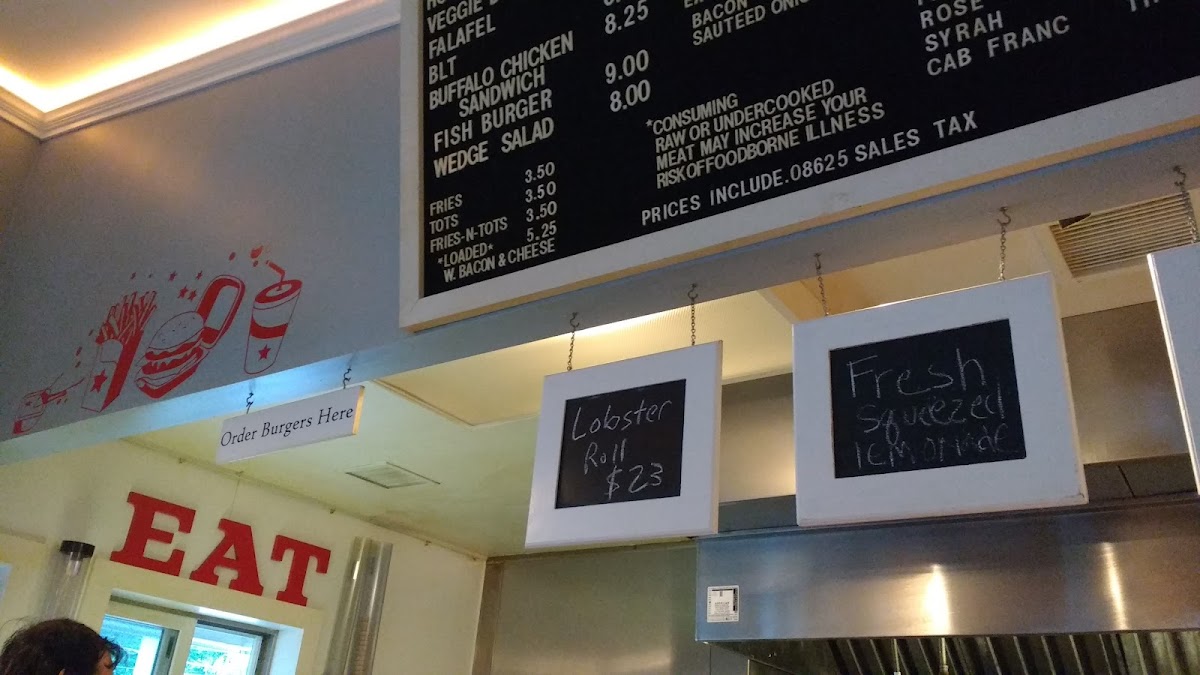 VEGGIE
FALAFEL
BLT 8.25
BUFFALO CHICKEN
SANDWICH 9.00
FISH BURGER 8.00
WEDGE SALAD
FRIES 3.50
TOTS 3.50
FRIES-N-TOTS 3.50
*LOADED* 5.25
W. BACON & CHEESE
BACON
SAUTEED
*CONSUMING
RAW OR UNDERCOOKED
MEAT MAY INCREASE YOUR
RISK OF FOODBORNE ILLNESS
PRICES INCLUDE .08625 SALES TAX
ROSE
SYRAH
CAB FRANC
Order Burgers Here
EAT
Lobster
Roll
$23
Fresh
Squeezed
lemonade